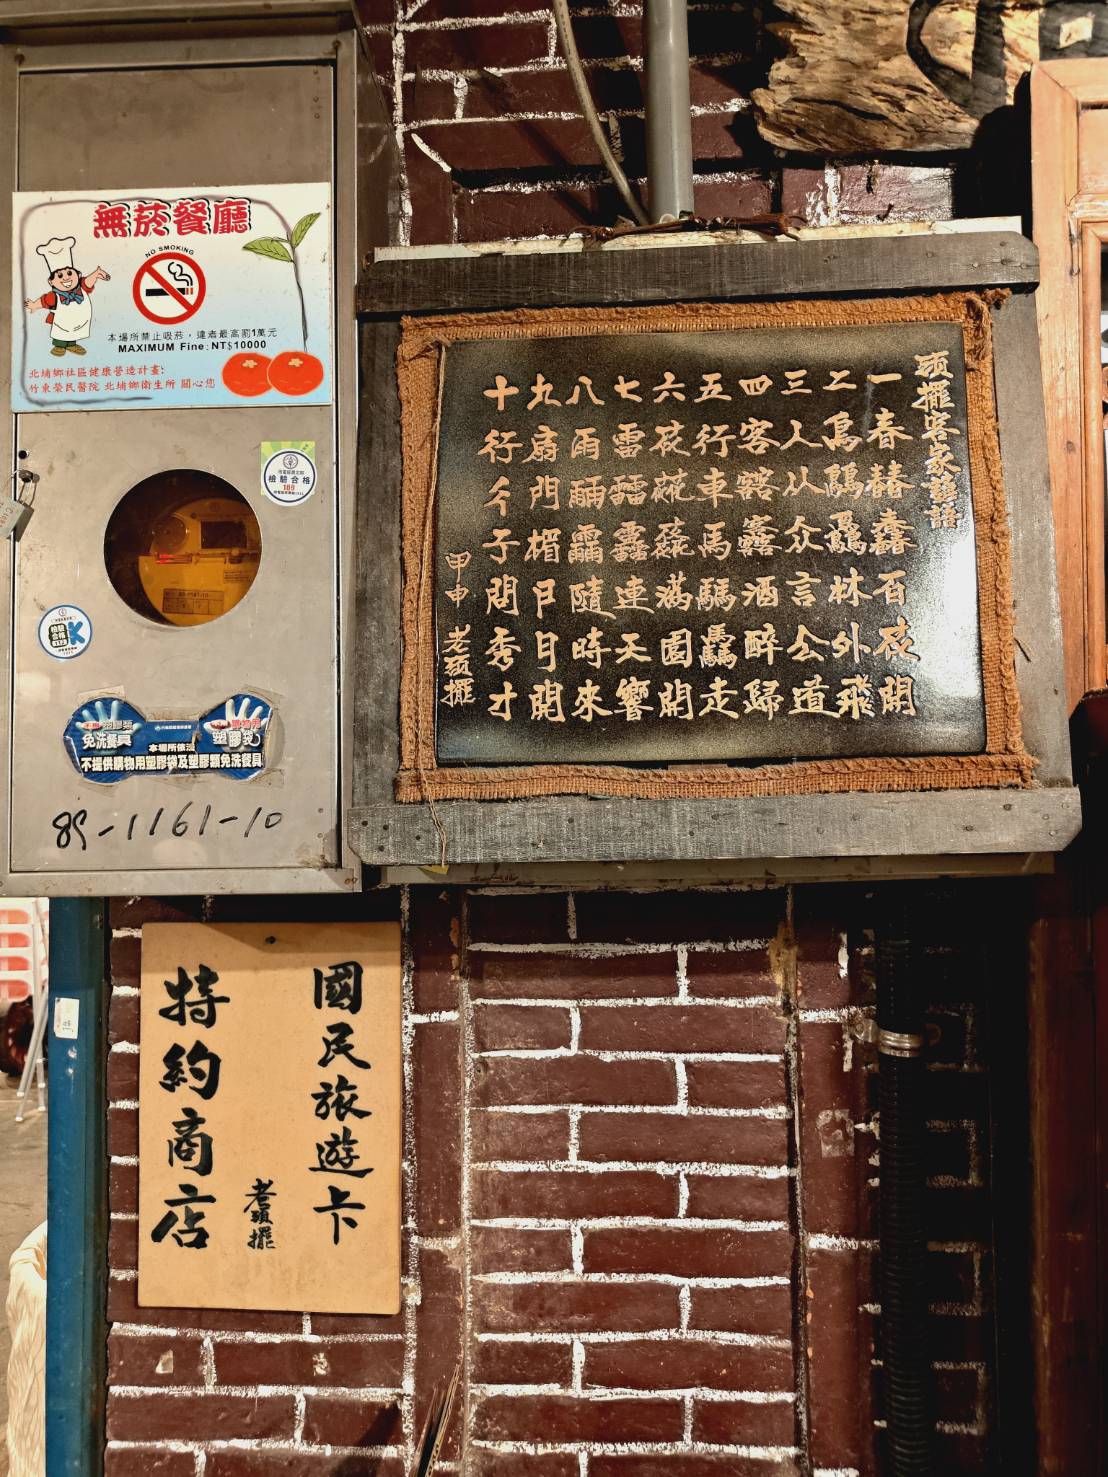 無菸餐廳
NO SMOKING
本場所禁止吸菸，違者最高罰1萬元
MAXIMUM Fine:NT$10000
北埔鄉社區健康營造計畫:
竹東榮民醫院 北埔鄉衛生所 關心您
檢驗合格
109
檢驗
合格
K
免洗餐具
塑膠袋
本場所依法
不提供購物用塑膠袋及塑膠類免洗餐具
89-1161-10
頭擺客家語
一春百花開
二鳥林外飛
三人从众言公道
四客酒醉歸
五行車馬驫走
六花滿園開
七連天響
八雨隨時來
九扇門楣戶日開
十行彳亍問秀才
甲申 老頭擺
國民旅遊卡
老頭擺
特約商店